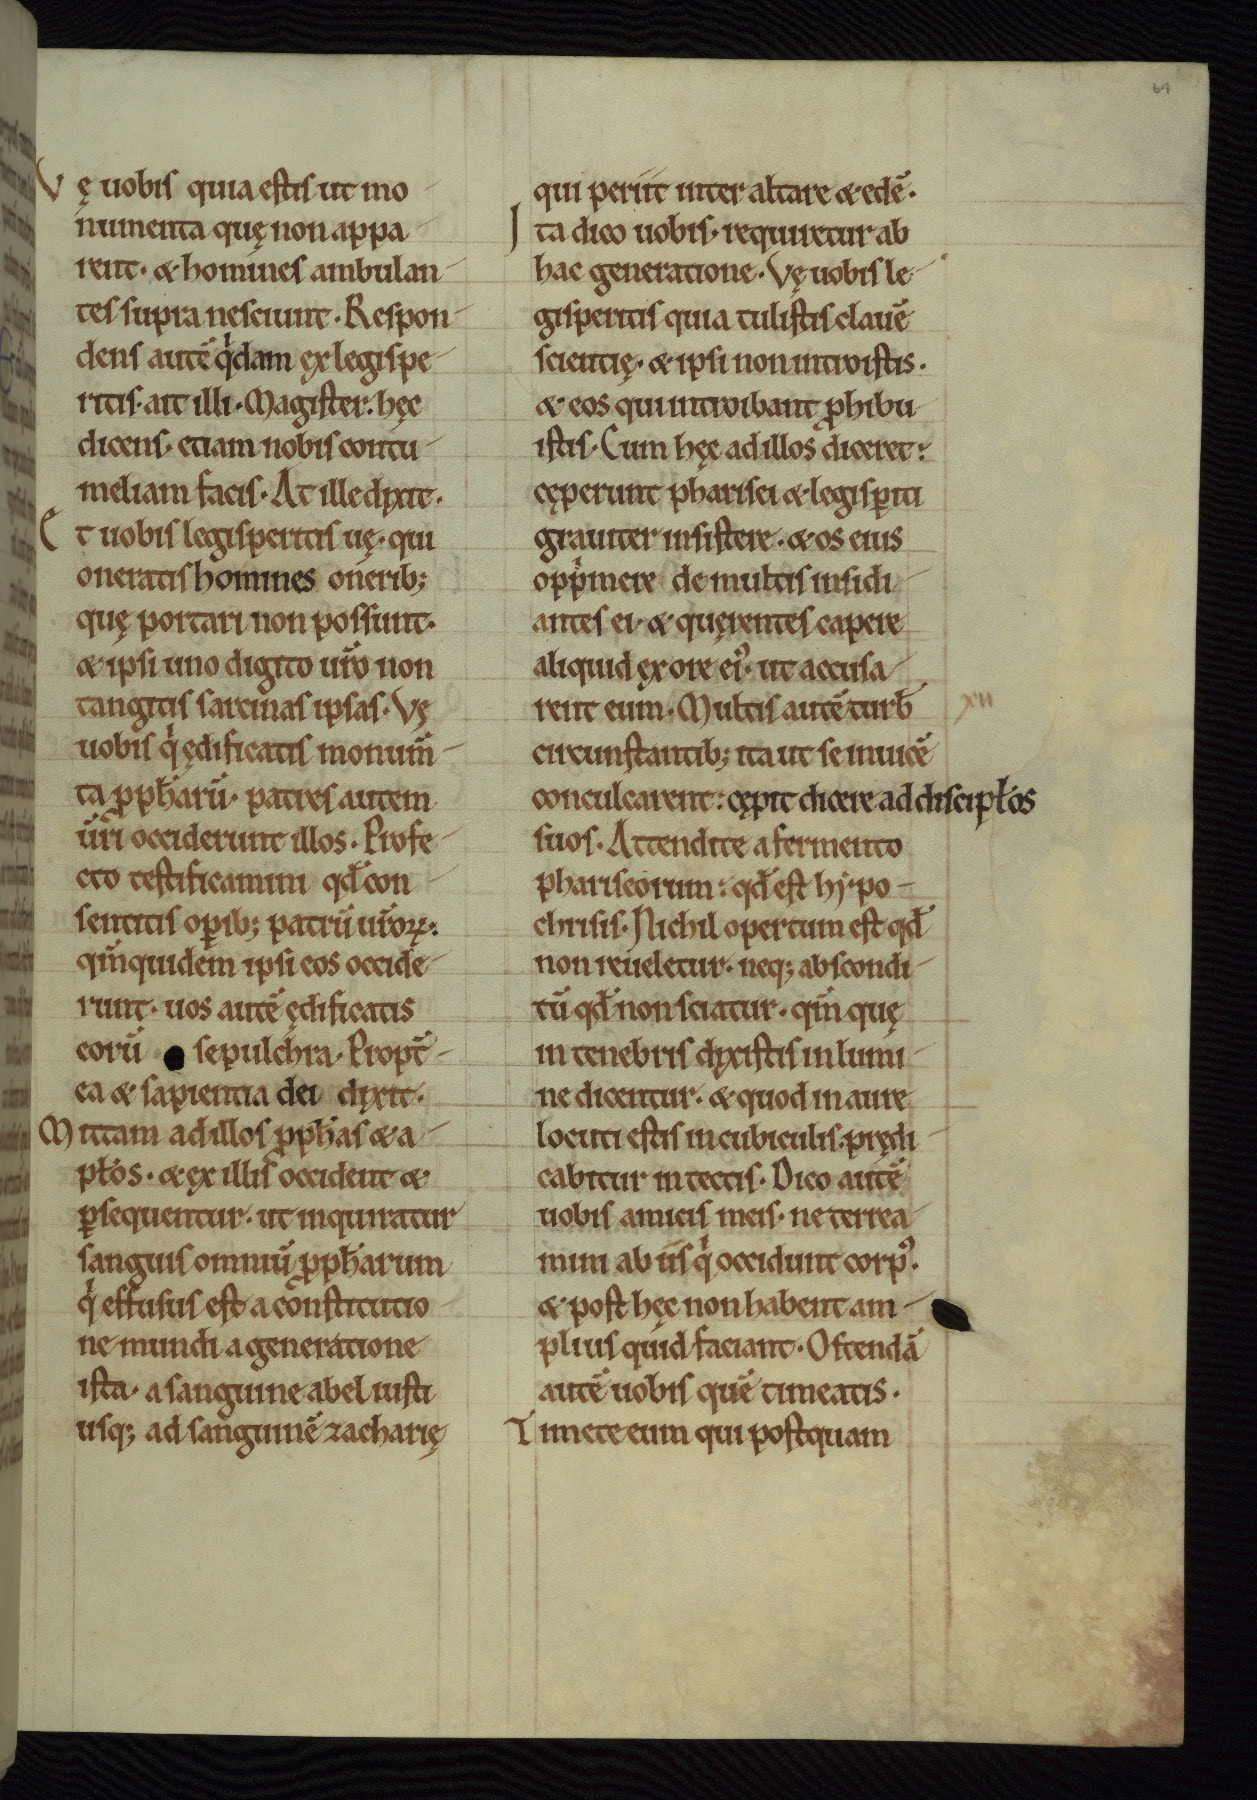 64
Vę uobis quia estis ut mo
numenta quę non appa
rent· & homines ambulan
tes supra nesciunt· Respon
dens autē qͥdam ex legispe
ritis· ait illi· Magister· hęc
dicens· etiam nobis contu
meliam facis· At ille dixit·
Et uobis legisperitis uę· qui
oneratis homines onerib;
quę portari non possunt·
& ipsi uno digito ur̄o non
tangitis sarcinas ipsas· Vę
uobis qͥ ędificatis monum̄
ta ꝓph̄arū· patres autem
ur̄i occiderunt illos· Profe
cto testificamini qd̄ con
sentitis oꝑib; patrū ur̄oꝝ:
qm̄ quidem ipsi eos occide
runt· uos autē ędificatis
eorū sepulchra· Propt̄
ea & sapientia dei dixit·
Mittam ad illos ꝓph̄as & a
pl̄os· & ex illis occident &
ꝑsequentur· ut inquiratur
sanguis omniū ꝓph̄arum
qͥ effusus est a constitutio
ne mundi a generatione
ista· a sanguine abel iusti
usq; ad sanguinē zacharię
qui periit inter altare & edē·
Ita dico uobis· requiretur ab
hac generatione· Vę uobis le
gisperitis quia tulistis clauē
scientię· & ipsi non introistis·
& eos qui introibant ꝓhibu
istis· Cum hęc ad illos diceret:
cęperunt pharisei & legisꝑiti
grauiter insistere· & os eius
oppͥmere de multis insidi
antes ei· & quęrentes capere
aliquid ex ore eiꝰ· ut accusa
rent eum· Multis autē turb̄
XII
circunstantib; ita ut se inuicē
conculcarent: cępit dicere ad discipl̄os
suos· Attendite a fermento
phariseorum: qd̄ est hy·po
chrisis· Nichil opertum est qd̄
non reueletur· neq; abscondi
tū qd̄ non sciatur· qm̄ quę
in tenebris dixistis in lumi
ne dicentur· & quod in aure
locuti estis in cubiculis· prędi
cabitur in tectis· Dico autē
uobis amicis meis· ne terrea
mini ab iis qͥ occidunt corpꝰ·
& post hęc non habent am
plius quid faciant· Ostendā
autē uobis quē timeatis·
Timete eum qui postquam